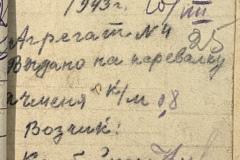 1943 г. 10/VIII
Агрегат N 4 25
Выдано на перевалку
ячменя к/м 0,8
Возчик: